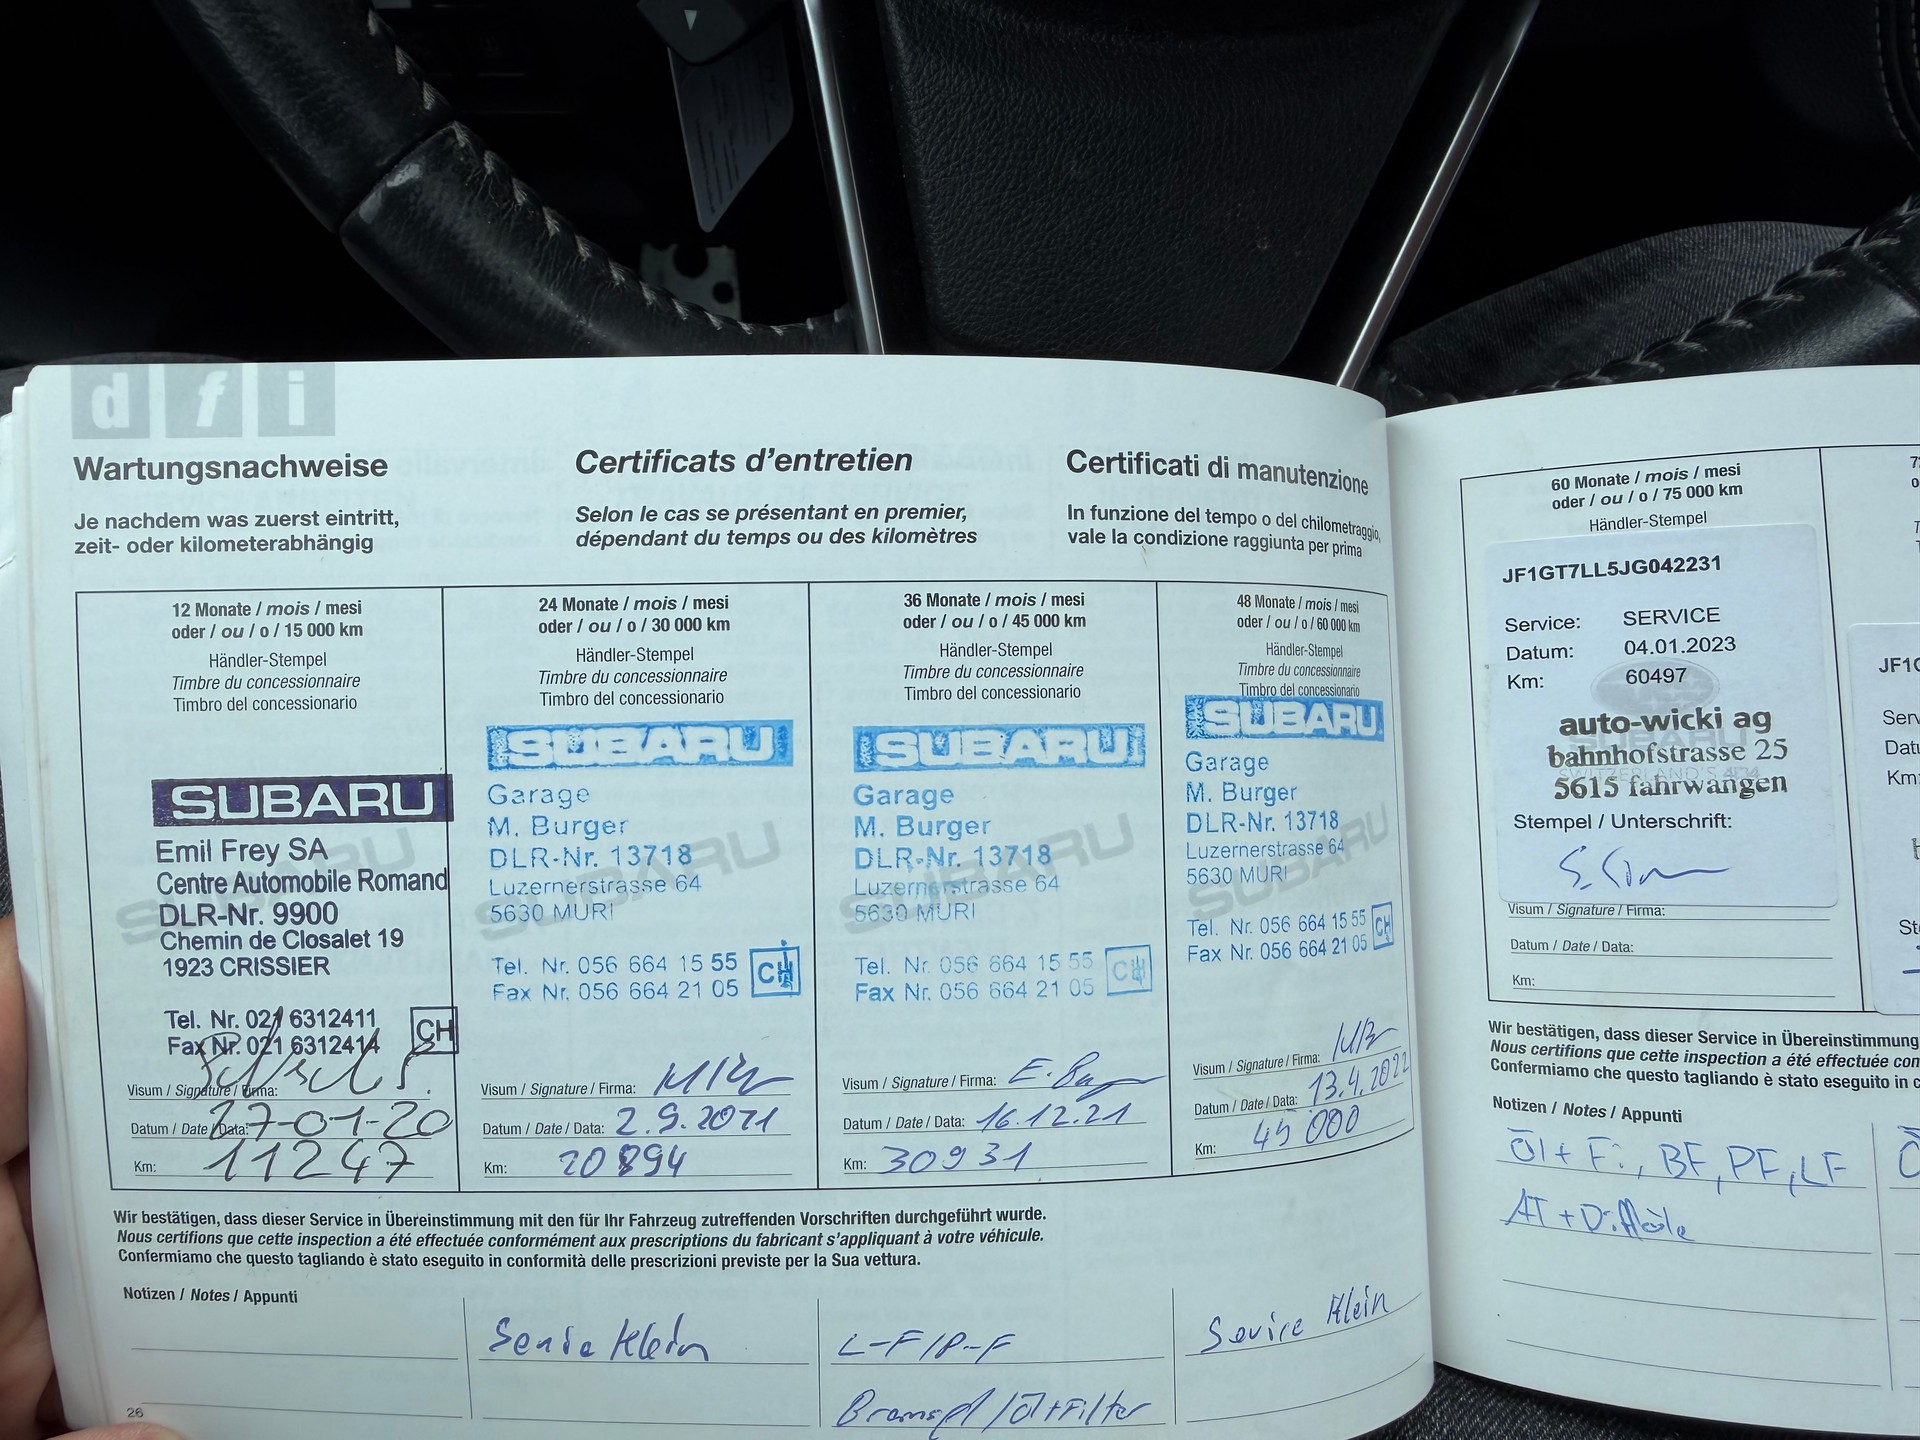 d f i
Wartungsnachweise
Je nachdem was zuerst eintritt,
zeit- oder kilometerabhängig
Certificats d'entretien
Selon le cas se présentant en premier,
dépendant du temps ou des kilomètres
Certificati di manutenzione
In funzione del tempo o del chilometraggio,
vale la condizione raggiunta per prima
12 Monate / mois / mesi
oder / ou / o / 15 000 km
Händler-Stempel
Timbre du concessionnaire
Timbro del concessionario
SUBARU
Emil Frey SA
Centre Automobile Romand
DLR-Nr. 9900
Chemin de Closalet 19
1923 CRISSIER
Tel. Nr. 021 6312411
Fax Nr. 021 6312414
CH
Visum / Signature / Firma:
Datum / Date / Data: 27-01-20
Km: 11247
24 Monate / mois / mesi
oder / ou / o / 30 000 km
Händler-Stempel
Timbre du concessionnaire
Timbro del concessionario
SUBARU
Garage
M. Burger
DLR-Nr. 13718
Luzernerstrasse 64
5630 MURI
Tel. Nr. 056 664 15 55
Fax Nr. 056 664 21 05
CH
Visum / Signature / Firma:
Datum / Date / Data: 2.9.2021
Km: 20894
36 Monate / mois / mesi
oder / ou / o / 45 000 km
Händler-Stempel
Timbre du concessionnaire
Timbro del concessionario
SUBARU
Garage
M. Burger
DLR-Nr. 13718
Luzernerstrasse 64
5630 MURI
Tel. Nr. 056 664 15 55
Fax Nr. 056 664 21 05
CH
Visum / Signature / Firma:
Datum / Date / Data: 16.12.21
Km: 30931
48 Monate / mois / mesi
oder / ou / o / 60 000 km
Händler-Stempel
Timbre du concessionnaire
Timbro del concessionario
SUBARU
Garage
M. Burger
DLR-Nr. 13718
Luzernerstrasse 64
5630 MURI
Tel. Nr. 056 664 15 55
Fax Nr. 056 664 21 05
CH
Visum / Signature / Firma:
Datum / Date / Data: 13.4.2022
Km: 45000
Wir bestätigen, dass dieser Service in Übereinstimmung mit den für Ihr Fahrzeug zutreffenden Vorschriften durchgeführt wurde.
Nous certifions que cette inspection a été effectuée conformément aux prescriptions du fabricant s'appliquant à votre véhicule.
Confermiamo che questo tagliando è stato eseguito in conformità delle prescrizioni previste per la Sua vettura.
Notizen / Notes / Appunti
Service Klein
L-F/P-F
Bremsfl/Öl+Filter
Service Klein
26
60 Monate / mois / mesi
oder / ou / o / 75 000 km
Händler-Stempel
JF1GT7LL5JG042231
Service: SERVICE
Datum: 04.01.2023
Km: 60497
auto-wicki ag
bahnhofstrasse 25
5615 fahrwangen
Stempel / Unterschrift:
Visum / Signature / Firma:
Datum / Date / Data:
Km:
Wir bestätigen, dass dieser Service in Übereinstimmung
Nous certifions que cette inspection a été effectuée con
Confermiamo che questo tagliando è stato eseguito in c
Notizen / Notes / Appunti
Öl + Fi, BF, PF, LF
AT + Diff.öle
JF1G
Serv
Datu
Km: